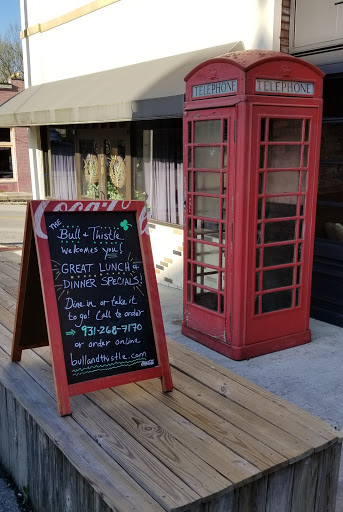 TELEPHONE
TELEPHONE
Coca-Cola
THE
Bull & Thistle
welcomes you!
GREAT LUNCH &
DINNER SPECIALS!
Dine in or take it
to go! Call to order
→ 931-268-7170
or order online
bullandthistle.com